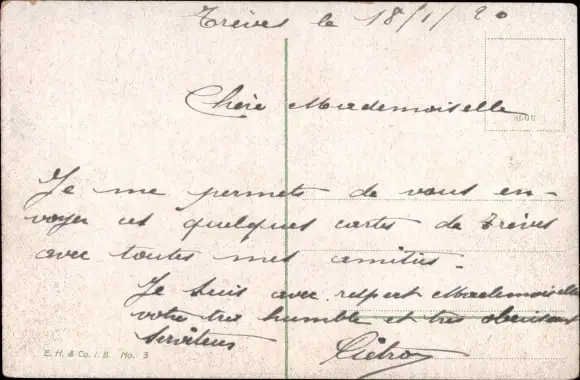 Trèves le 18/1/20
Chère Mademoiselle
Je me permets de vous en-
voyer ces quelques cartes de Trèves
avec toutes mes amitiés.
Je suis avec respect Mademoiselle
votre très humble et très obeissant
serviteur
E. H. & Co. i. B. No. 3